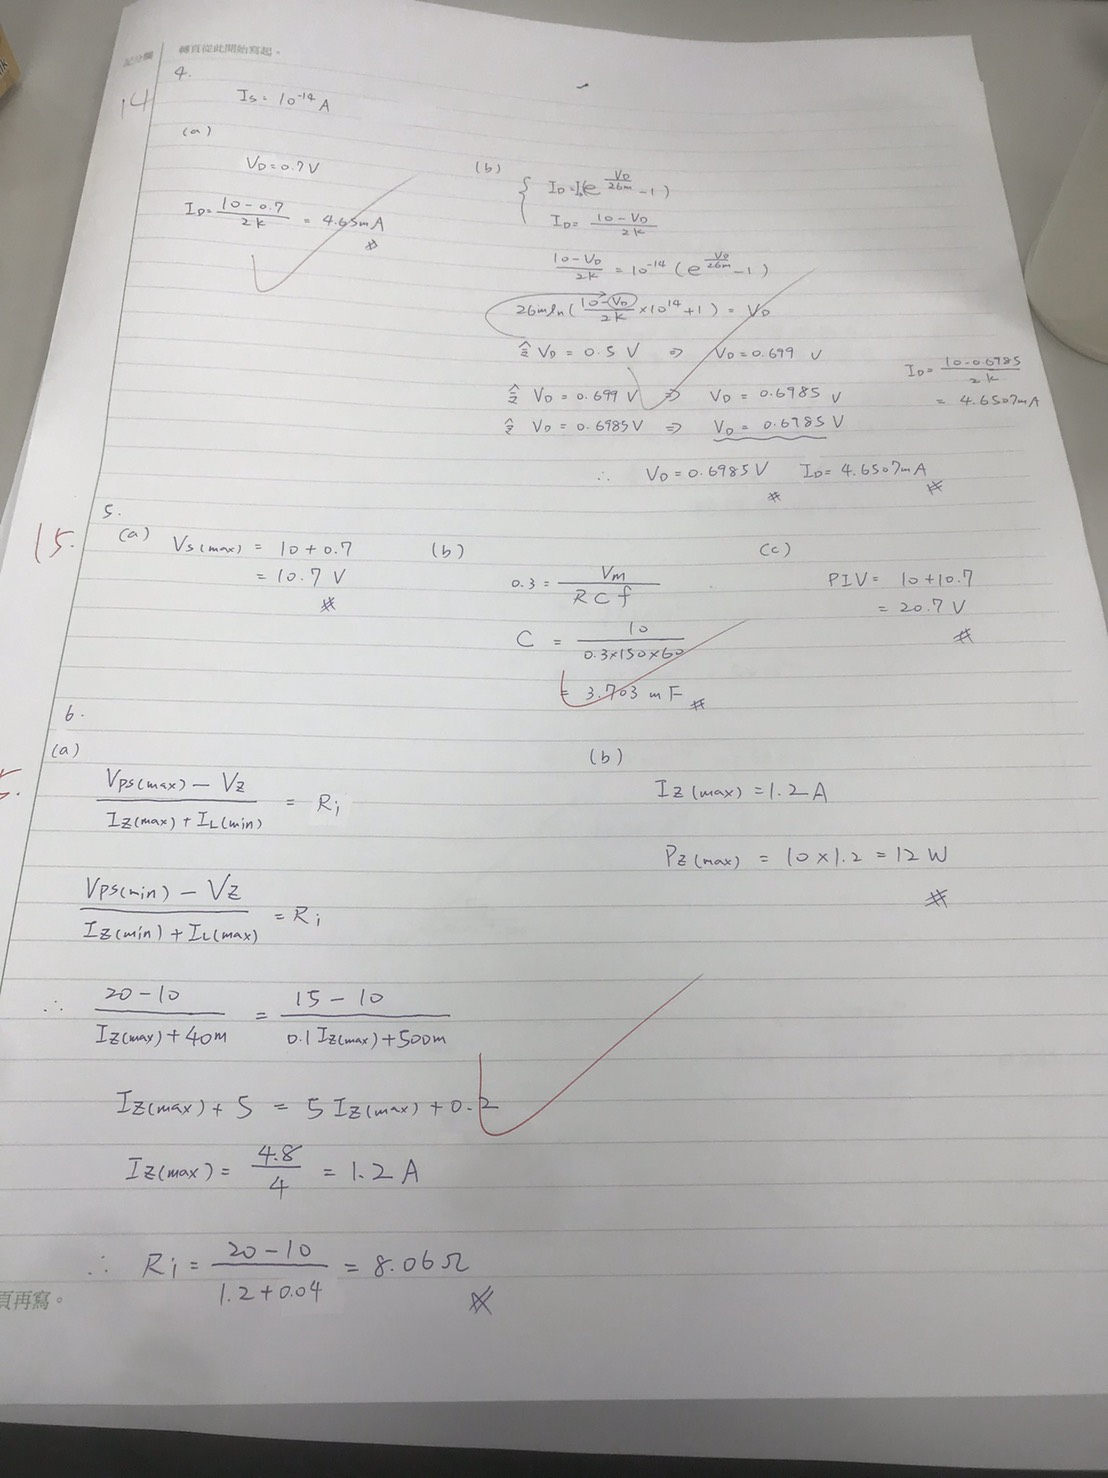 記分欄
轉頁從此開始寫起。
14
4.
Is = 10⁻¹⁴ A
(a)
V_D = 0.7 V
I_D = (10 - 0.7)/2k = 4.65mA
(b)
I_D = Is(e^(V_D/26m) - 1)
I_D = (10 - V_D)/2k
(10 - V_D)/2k = 10⁻¹⁴ (e^(V_D/26m) - 1)
26m ln((10 - V_D)/2k × 10¹⁴ + 1) = V_D
令 V_D = 0.5 V ⇒ V_D = 0.699 V
令 V_D = 0.699 V ⇒ V_D = 0.6985 V
令 V_D = 0.6985 V ⇒ V_D = 0.6985 V
I_D = (10 - 0.6985)/2k
= 4.6507mA
∴ V_D = 0.6985 V I_D = 4.6507mA
15.
5.
(a) Vs(max) = 10 + 0.7
= 10.7 V
(b)
0.3 = Vm/(RCf)
C = 10/(0.3×150×60)
= 3.703 mF
(c)
PIV = 10 + 10.7
= 20.7 V
6.
(a)
(V_PS(max) - V_Z)/(I_Z(max) + I_L(min)) = R_i
(V_PS(min) - V_Z)/(I_Z(min) + I_L(max)) = R_i
∴ (20 - 10)/(I_Z(max) + 40m) = (15 - 10)/(0.1 I_Z(max) + 500m)
I_Z(max) + 5 = 5 I_Z(max) + 0.2
I_Z(max) = 4.8/4 = 1.2 A
∴ R_i = (20 - 10)/(1.2 + 0.04) = 8.06Ω
(b)
I_Z(max) = 1.2 A
P_Z(max) = 10 × 1.2 = 12 W
頁再寫。